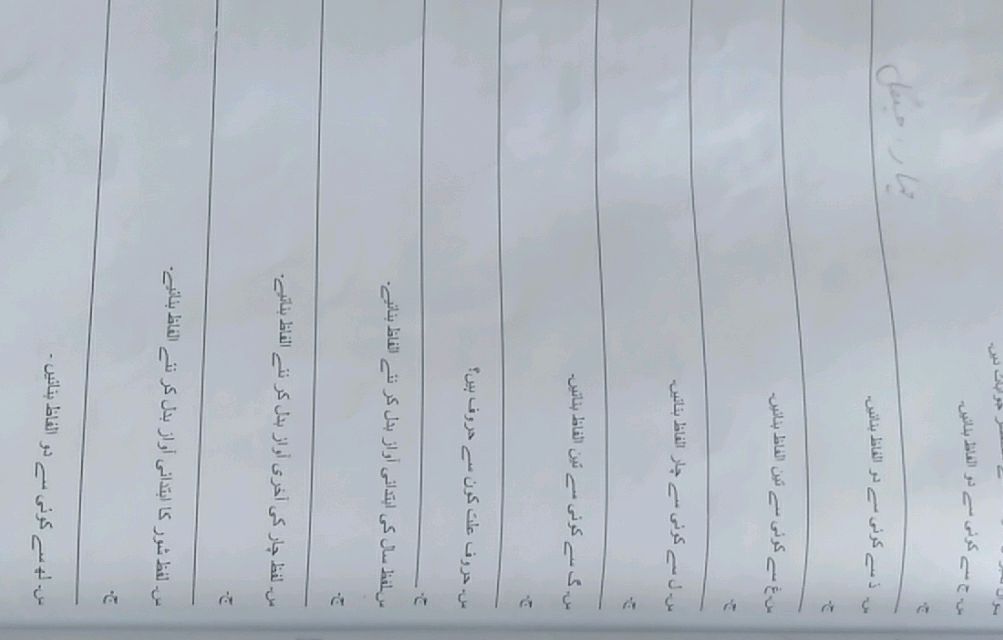 س۔ ج سے کوئی سے دو الفاظ بنائیں۔
ج۔
س۔ ذ سے کوئی سے دو الفاظ بنائیں۔
ج۔
س۔ غ سے کوئی سے تین الفاظ بنائیں۔
ج۔
س۔ ل سے کوئی سے چار الفاظ بنائیں۔
ج۔
س۔ گ سے کوئی سے تین الفاظ بنائیں۔
ج۔
س۔ حروف علت کون سے حروف ہیں؟
ج۔
س۔ لفظ سال کی ابتدائی آواز بدل کر نئے الفاظ بنائیے۔
ج۔
س۔ لفظ چار کی آخری آواز بدل کر نئے الفاظ بنائیے۔
ج۔
س۔ لفظ شور کا ابتدائی آواز بدل کر نئے الفاظ بنائیے۔
ج۔
س۔ لھ سے کوئی سے دو الفاظ بنائیں۔